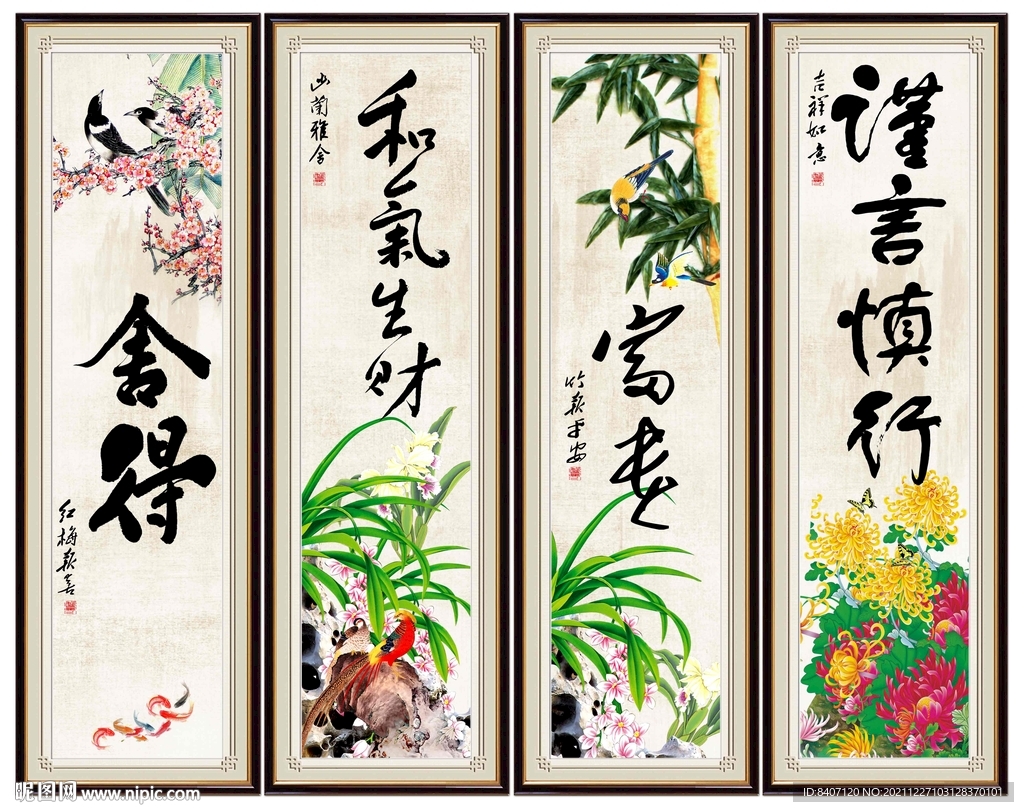 舍得
红梅报喜
和氣生财
幽蘭雅舍
富
竹报平安
謹言慎行
吉祥如意
昵图网 www.nipic.com
ID:8407120 NO:20211227103128370101